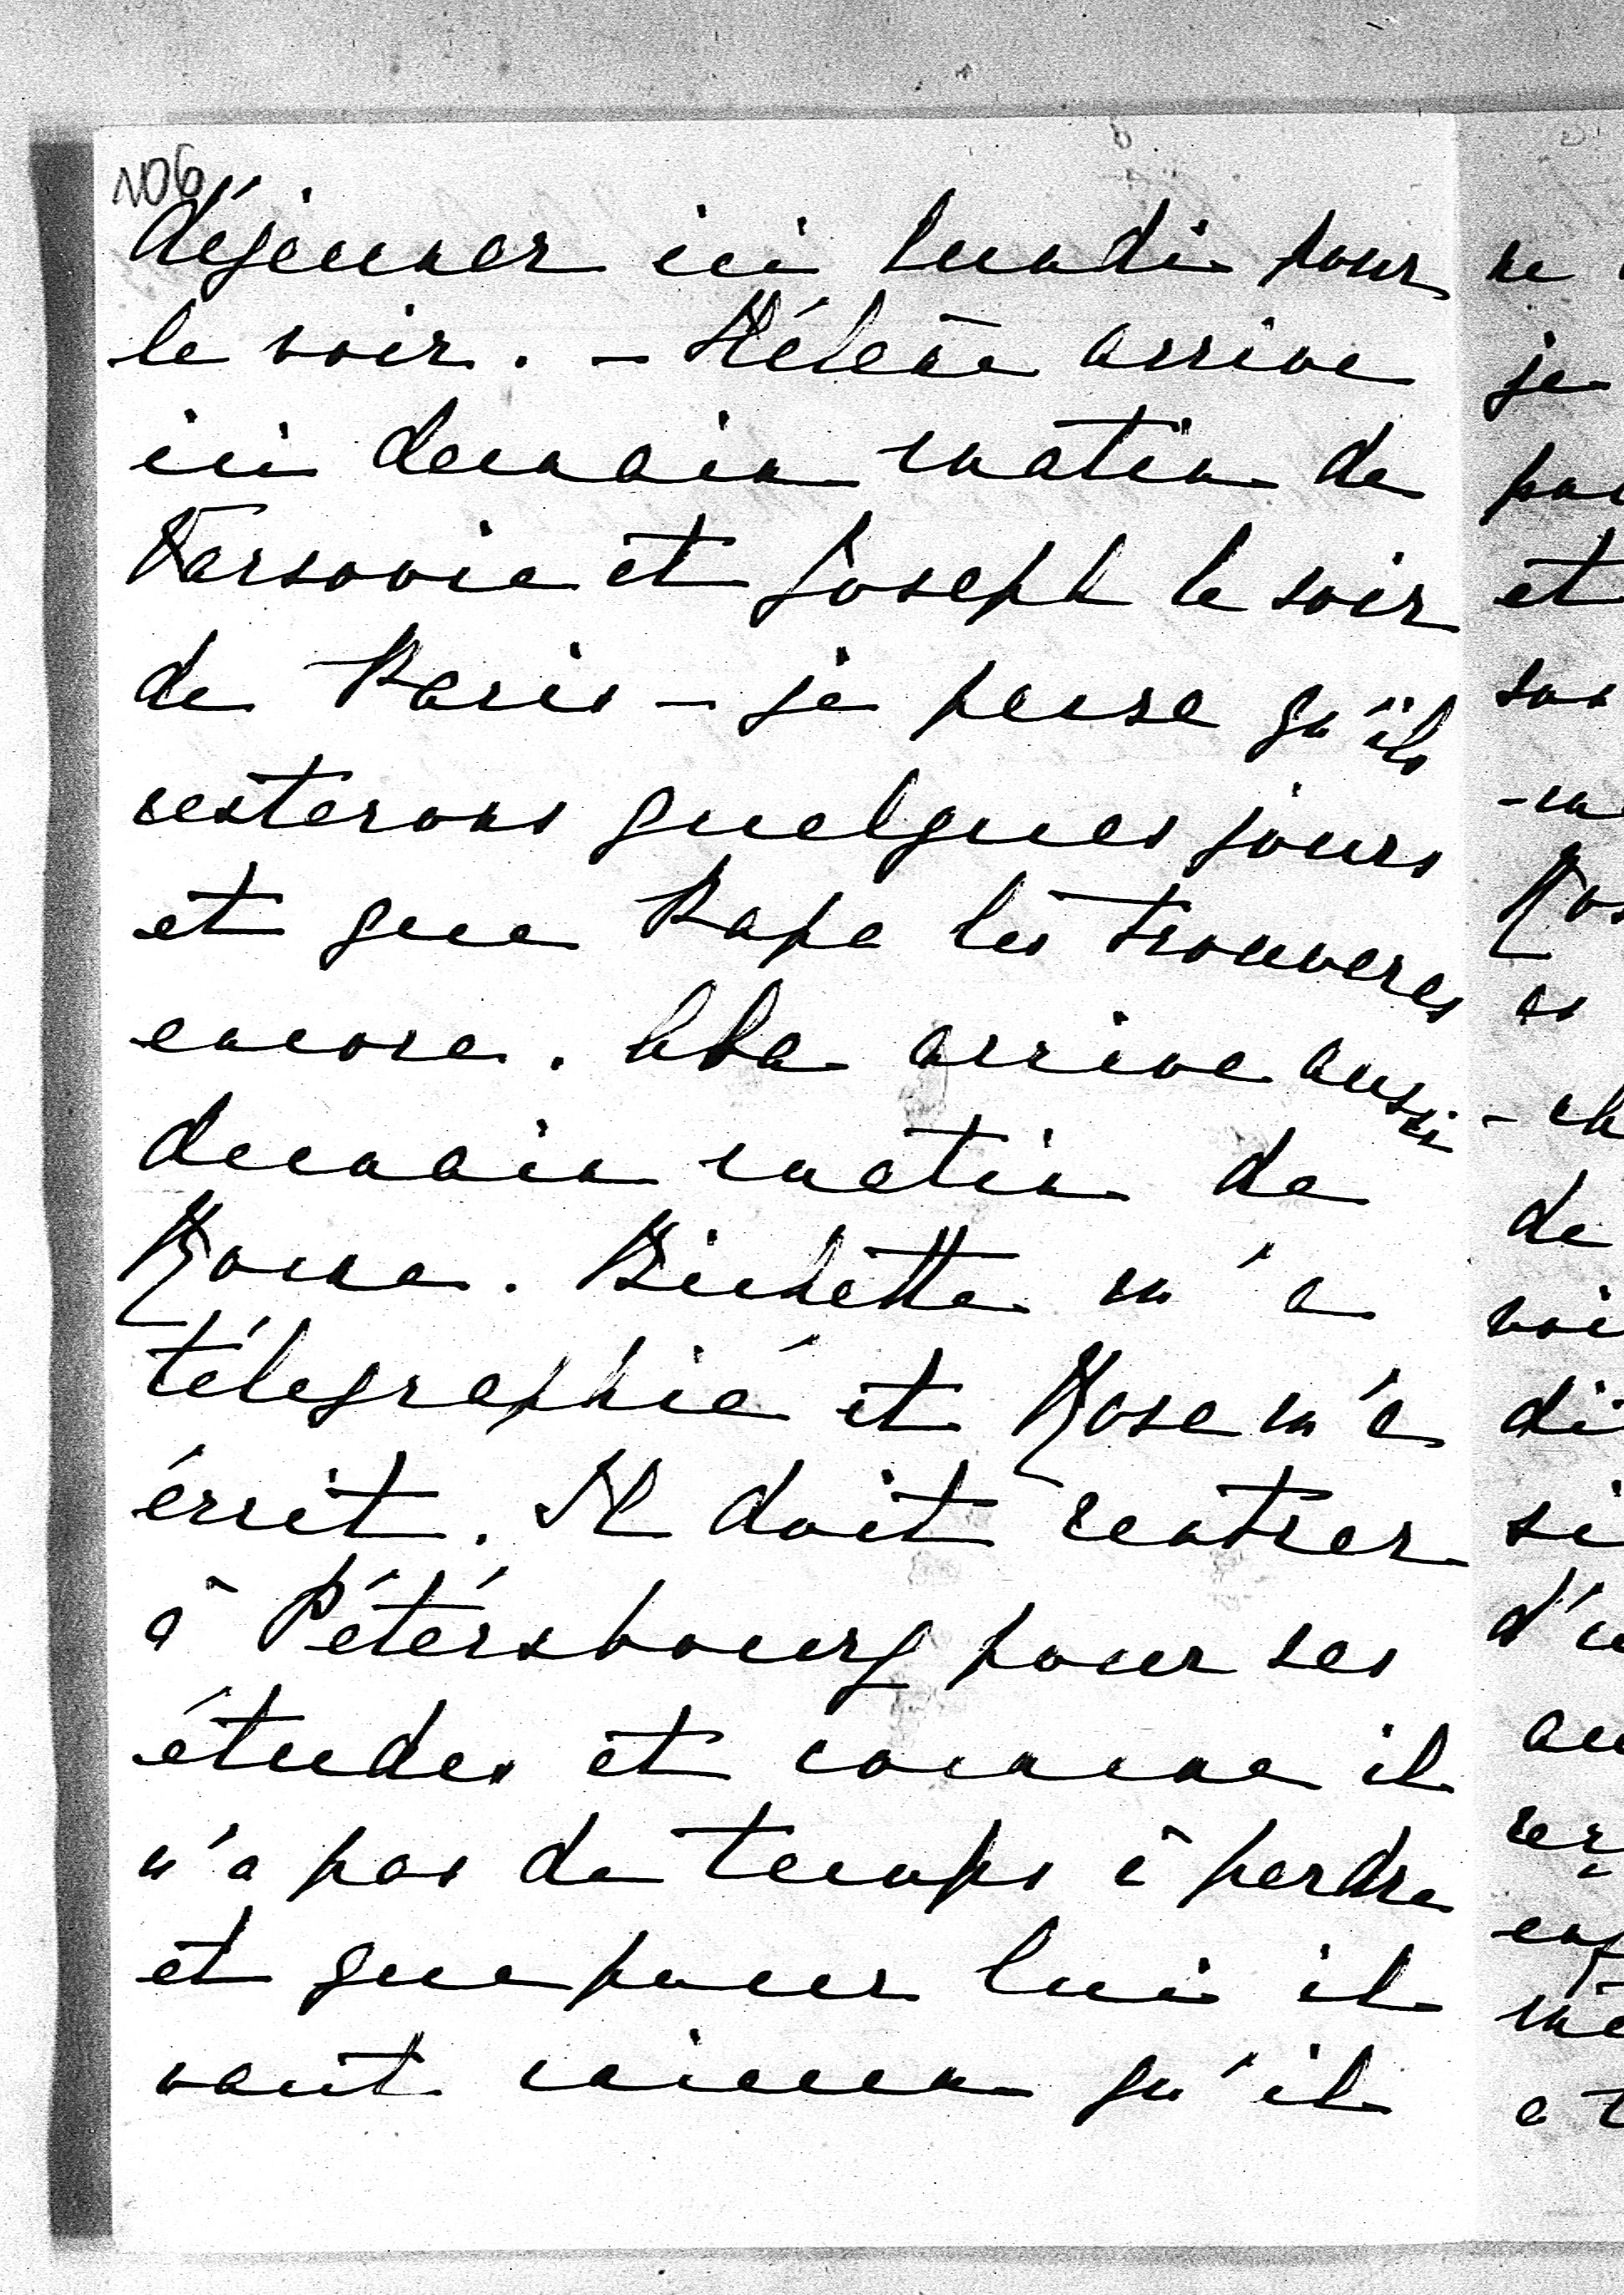 106
déjeuner ici lundi pour
le voir. – Hélène arrive
ici demain matin de
Varsovie et Joseph le soir
de Paris – je pense qu'ils
resterons quelques jours
et que Papa les trouveras
encore. Aba arrive aussi
demain matin de
Rome. Bichette m'a
télégraphié et Rose m'a
écrit. Il doit rentrer
à Pétérsbourg pour ses
études et comme il
n'a pas de temps à perdre
et que pour lui il
vaut mieux qu'il
ne
je
et
de